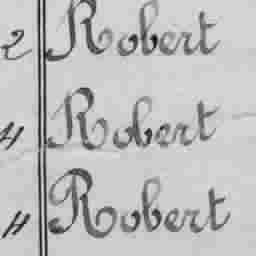 2 Robert
4 Robert
4 Robert